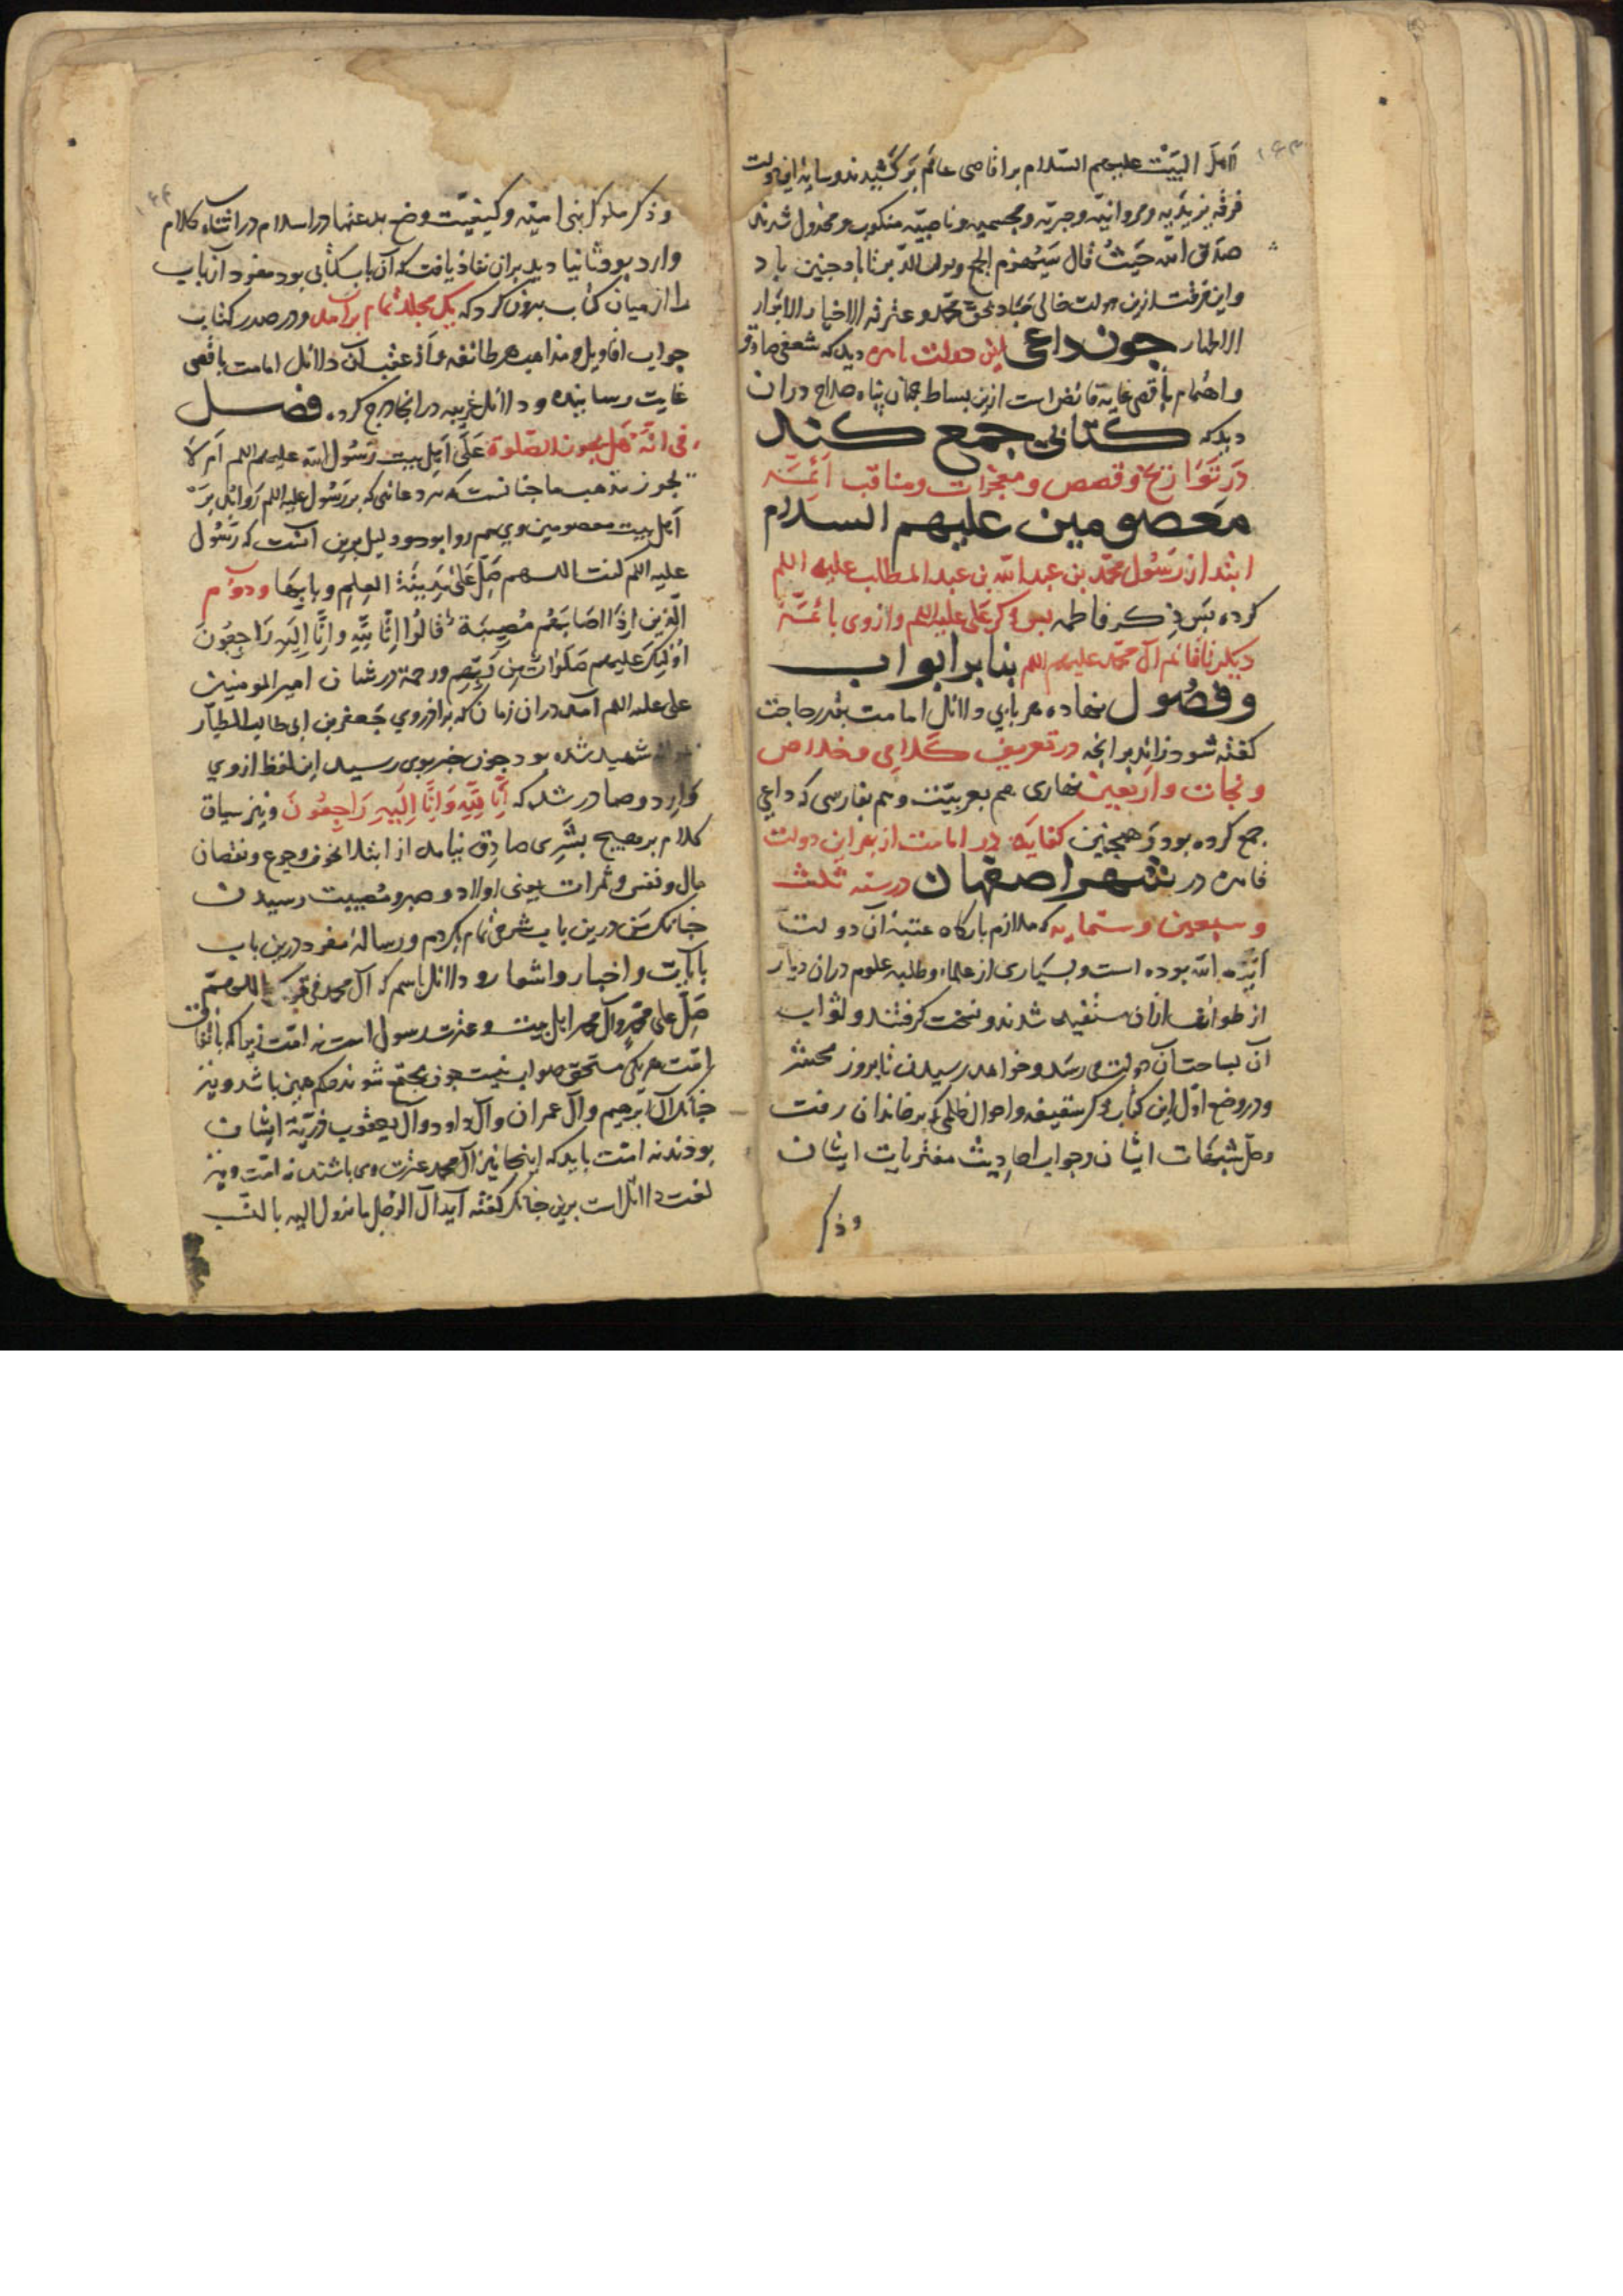 اهل البیت علیهم السلام بر اقاصی عالم برکشیدند و سایهٔ این دولت
فرقه یزیدیه و مروانیه و جبریه و مجسمیه و ناصبیه منکوب و مخذول شدند
صدق الله حیث قال سیهزم الجمع ویولون الدبر تا باد چنین باد
و این فرقت ازین دولت خالی مباد بحق محمد و عترته الاخیار الابرار
الاطهار چون داعی این دولت دید که شعفی صادق
و اهتمام باقصی غایة فائض است ازین بساط جهان پناه صلاح دران
دید که کتابی جمع کند
در تواریخ و قصص و معجزات و مناقب ائمه
معصومین علیهم السلام
ابتدا از رسول محمد بن عبدالله بن عبدالمطلب علیه اللم
کرده بس ذکر فاطمه بس ذکر علی علیه اللم و از وی بائمه
دیکر تا قائم آل محمد علیهم اللم بنا بر ابواب
و فصول نهاده هر بابی دلائل امامت بقدر حاجت
کفته شود زائد بر آنچه در تعریف کلامی و خلاص
و نجات و اربعین بهاری هم بعربیت و هم بفارسی که داعی
جمع کرده بود و همچنین کفایه در امامت از بهر این دولت
قاهره در شهر اصفهان در سنه ثلث
و سبعین و ستمایه که ملازم بارکاه عتبهٔ آن دولت
ایده الله بوده است و بسیاری از علماء و طلبه علوم دران دیار
از طوائف ازان مستفید شدند و نسخت کرفتند و ثواب
آن بساحت آن دولت می رسد و خواهد رسیدن تا بروز محشر
و در وضع اول این کتاب ذکر سقیفه و احوال ظلمی که بر خاندان رفت
و حل شبهات ایشان و جواب احادیث مفتریات ایشان
وذکر
و ذکر ملوک بنی امیه و کیفیت وضع بدعتها در اسلام در اثناء کلام
وارد بود ثانیا دید بران نفاذ یافت که آن باب کتابی بود مفرد آن باب
را از میان کتاب بیرون کرد که یک مجلد تمام برآمد و در صدر کتاب
جواب اقاویل و مذاهب هر طائفه و از عقب آن دلائل امامت باقصی
غایت رسانیده و دلائل غریبه در انجا درج کرده فصل
فی انه هل یجوز الصلوة علی اهل بیت رسول الله علیهم اللم ام لا
یجوز مذهب ما چنانست که هر دعائی که بر رسول علیه اللم روا بود بر
اهل بیت معصومین وی هم روا بود و دلیل برین آنست که رسول
علیه اللم کفت اللهم صل علی مدینة العلم و بابها و دوم
الذین اذا اصابتهم مصیبة قالوا انا لله وانا الیه راجعون
اولئک علیهم صلوات من ربهم ورحمة در شان امیر المومنین
علی علیه اللم آمد دران زمان که برادر وی جعفر بن ابی طالب الطیار
شهید شده بود چون خبر بوی رسید این لفظ از وی
وارد و صادر شد که انا لله وانا الیه راجعون و نیز سیاق
کلام بر هیچ بشری صادق نیامد از ابتلا بخوف و جوع و نقصان
مال و نفس و ثمرات یعنی اولاد و صبر و مصیبت رسیدن
چنانک من درین باب شرحی تمام بکردم و رساله مفرد درین باب
بآیات و اخبار و اشعار و دلائل باسم که آل محمد فی قولک اللهم
صل علی محمد وآل محمد اهل بیت و عترت رسول است نه امت زیرا که باتفاق
امت هر یکی مستحق صلوات نیست چون مجتمع شوند حکم همین باشد و نیز
چنانک آل ابرهیم و آل عمران و آل داود و آل یعقوب ذریة ایشان
بودند نه امت باید که اینجا نیز آل محمد عترت وی باشند نه امت و نیز
لغت دال است برین چنانک کفته آید آل الرجل ما یئول الیه بالنسب